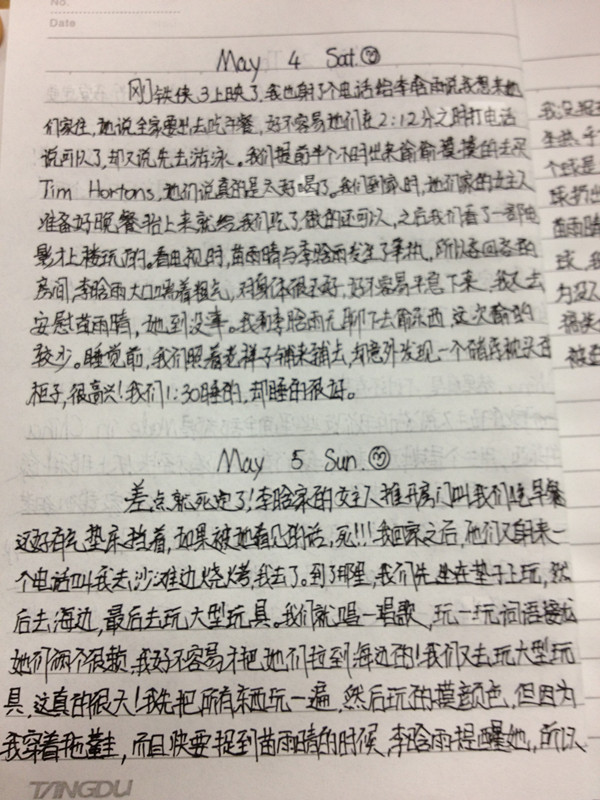 No.
Date
May 4 Sat.
刚铁侠3上映了,我也射了个电话给李晗雨说我想来她
们家住,她说全家要出去吃午餐,好不容易她们在2:12分之时打电话
说可以了,却又说先去游泳。我们提前半个小时出来偷偷摸摸的去买
Tim Hortons,她们说真的是太好喝了。我们到家时,她们家的女主人
准备好晚餐,抬上来就给我们吃了做的还可以,之后我们看了一部电
影才上楼玩的。看电视时,苗雨晴与李晗雨发生了争执,所以各回各的
房间,李晗雨大口喘着粗气,对身体很不好,好不容易平息下来,我又去
安慰苗雨晴,她到没事。我和李晗雨无聊下去偷东西,这次偷的
较少。睡觉前,我们照着老样子铺来铺去,却意外发现一个
柜子,很高兴!我们1:30睡的,却睡的很好。
May 5 Sun.
差点就死定了!李晗家的女主人推开房门叫我们吃早餐
这好有气垫床挡着,如果被她看见的话,死!!!我回家之后,他们又来一
个电话叫我去沙滩边烧烤,我去了。到了那里,我们先坐在垫子上玩,然
后去海边,最后去玩大型玩具。我们就唱一唱歌,玩一玩词语接龙
她们俩个很赖,我好不容易才把她们拉到海边的!我们又去玩大型玩
具,这真的很大!我先把所有东西玩一遍,然后玩的摸颜色,但因为
我穿着拖鞋,而且快要捉到苗雨晴的时候,李晗雨提醒她,所以
TANGDU